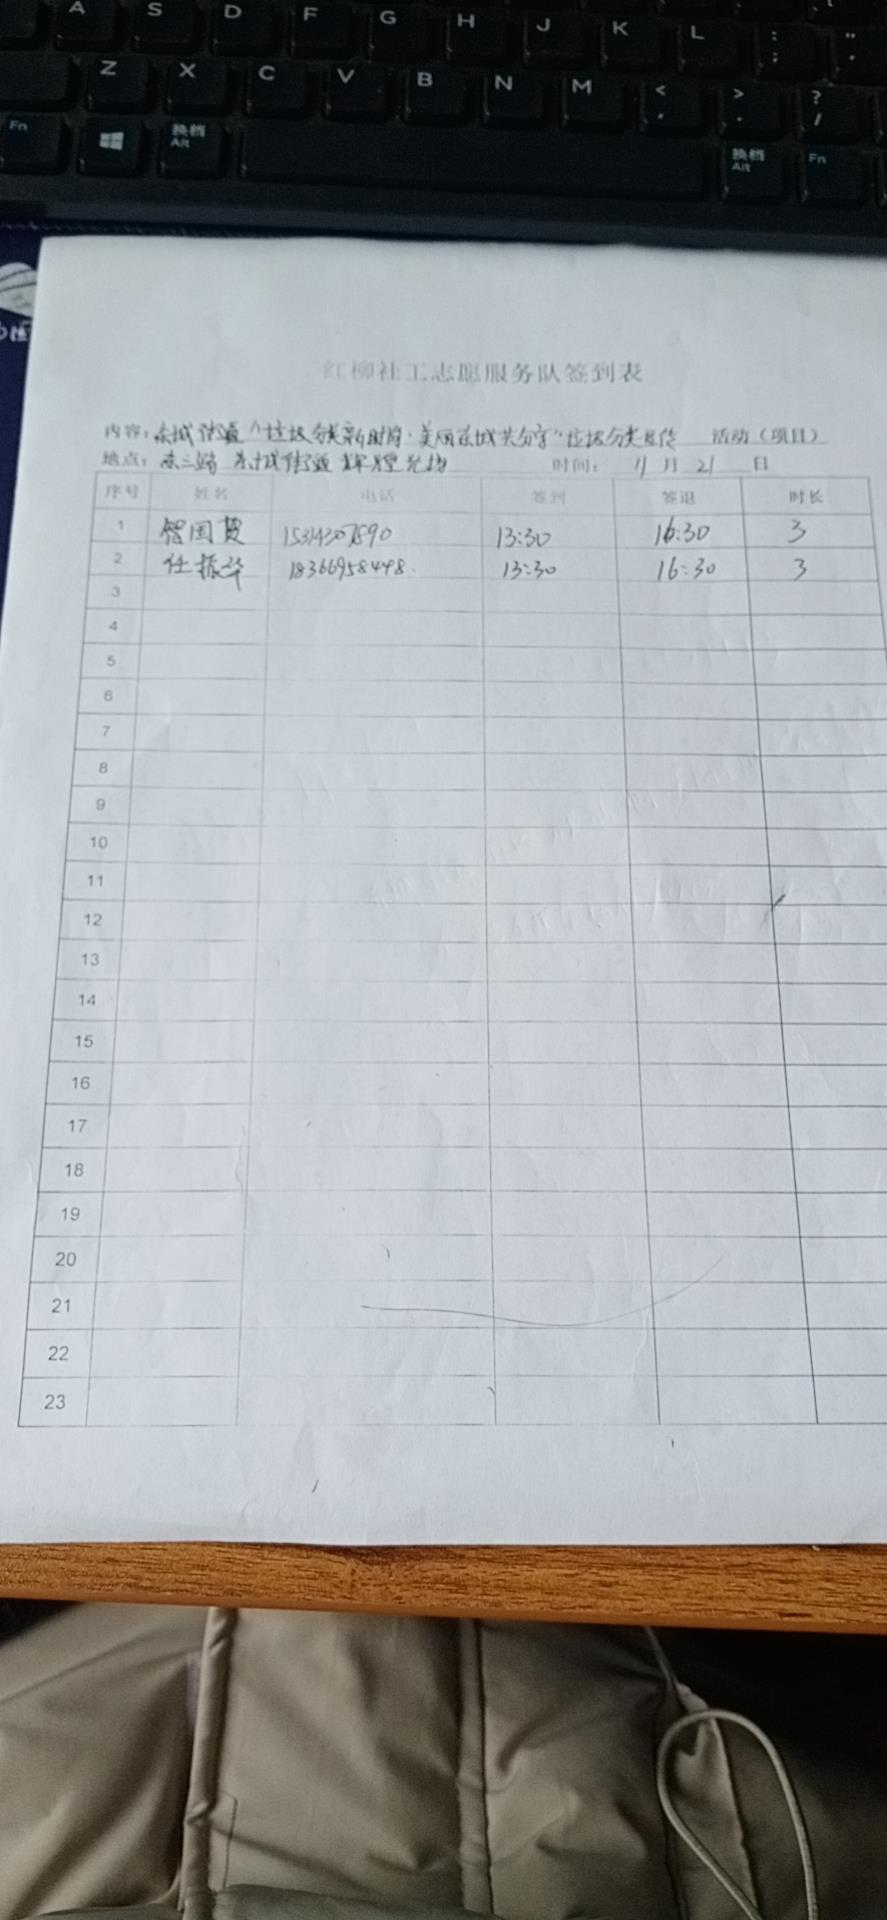 A S D F G H J K L : ;
Z X C V B N M < , > . ? /
Fn 换档 Alt 换档 Alt Fn
红柳社工志愿服务队签到表
内容：东城街道"垃圾分类新时尚·美丽东城共分享"垃圾分类宣传 活动（项目）
地点：东三路 东城街道 辉煌 时间：11月21日
序号 姓名 电话 签到 签退 时长
1 国 15314307890 13:30 16:30 3
2 任振华 18366958498. 13:30 16:30 3
3
4
5
6
7
8
9
10
11
12
13
14
15
16
17
18
19
20
21
22
23